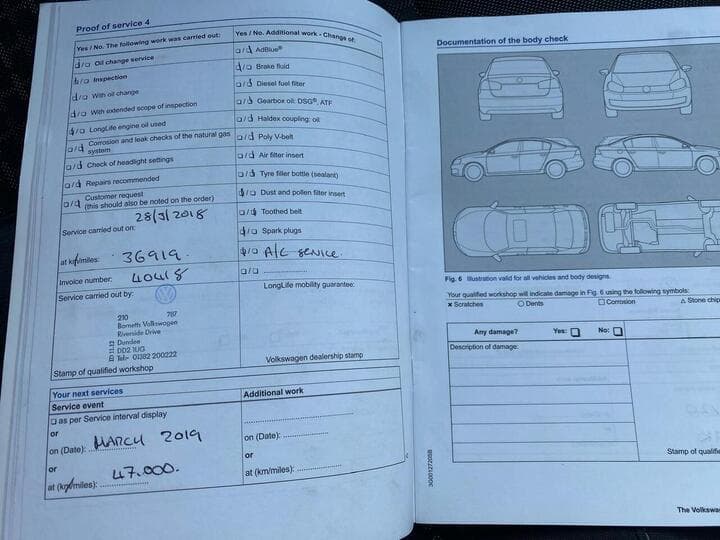 Proof of service 4
Yes / No. The following work was carried out:
Oil change service
Inspection
With oil change
With extended scope of inspection
LongLife engine oil used
Corrosion and leak checks of the natural gas
system
Check of headlight settings
Repairs recommended
Customer request
(this should also be noted on the order)
Service carried out on: 28/3/2018
at km/miles: 36919.
Invoice number: 40418
Service carried out by:
210 787
Barnetts Volkswagen
Riverside Drive
Dundee
DD2 1UG
Tel:- 01382 200222
Stamp of qualified workshop
Yes / No. Additional work - Change of:
AdBlue®
Brake fluid
Diesel fuel filter
Gearbox oil: DSG®, ATF
Haldex coupling: oil
Poly V-belt
Air filter insert
Tyre filler bottle (sealant)
Dust and pollen filter insert
Toothed belt
Spark plugs
A/C service.
LongLife mobility guarantee:
Volkswagen dealership stamp
Your next services
Service event
as per Service interval display
or
on (Date): MARCH 2019
or
at (km/miles): 47.000.
Additional work
on (Date):
or
at (km/miles):
Documentation of the body check
Fig. 6 Illustration valid for all vehicles and body designs.
Your qualified workshop will indicate damage in Fig. 6 using the following symbols:
× Scratches ○ Dents □ Corrosion △ Stone chip
Any damage? Yes: □ No: □
Description of damage:
Stamp of qualifie
3G0012720SB
The Volkswa